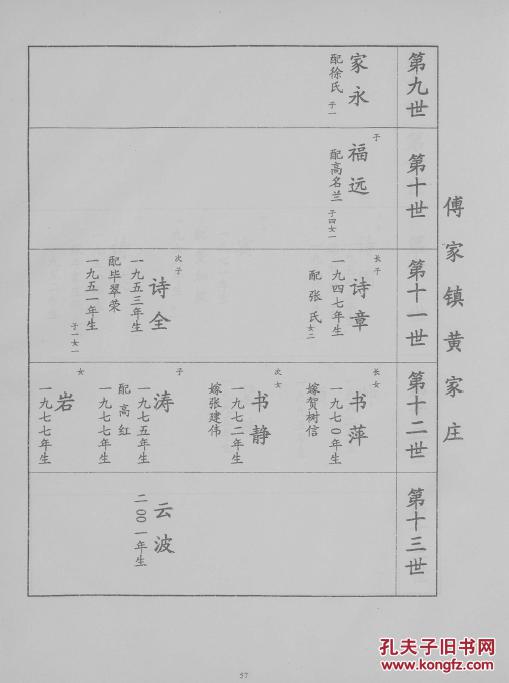 傅家镇黄家庄
第九世
家永
配徐氏
子一
第十世
子
福远
配高名兰
子四女一
第十一世
长子
诗章
一九四七年生
配张氏
女二
次子
诗全
一九五三年生
配毕翠荣
一九五一年生
子一女一
第十二世
长女
书萍
一九七〇年生
嫁贺树信
次女
书静
一九七二年生
嫁张建伟
子
涛
一九七五年生
配高红
一九七七年生
女
岩
一九七七年生
第十三世
云波
二〇〇一年生
57
孔夫子旧书网
www.kongfz.com